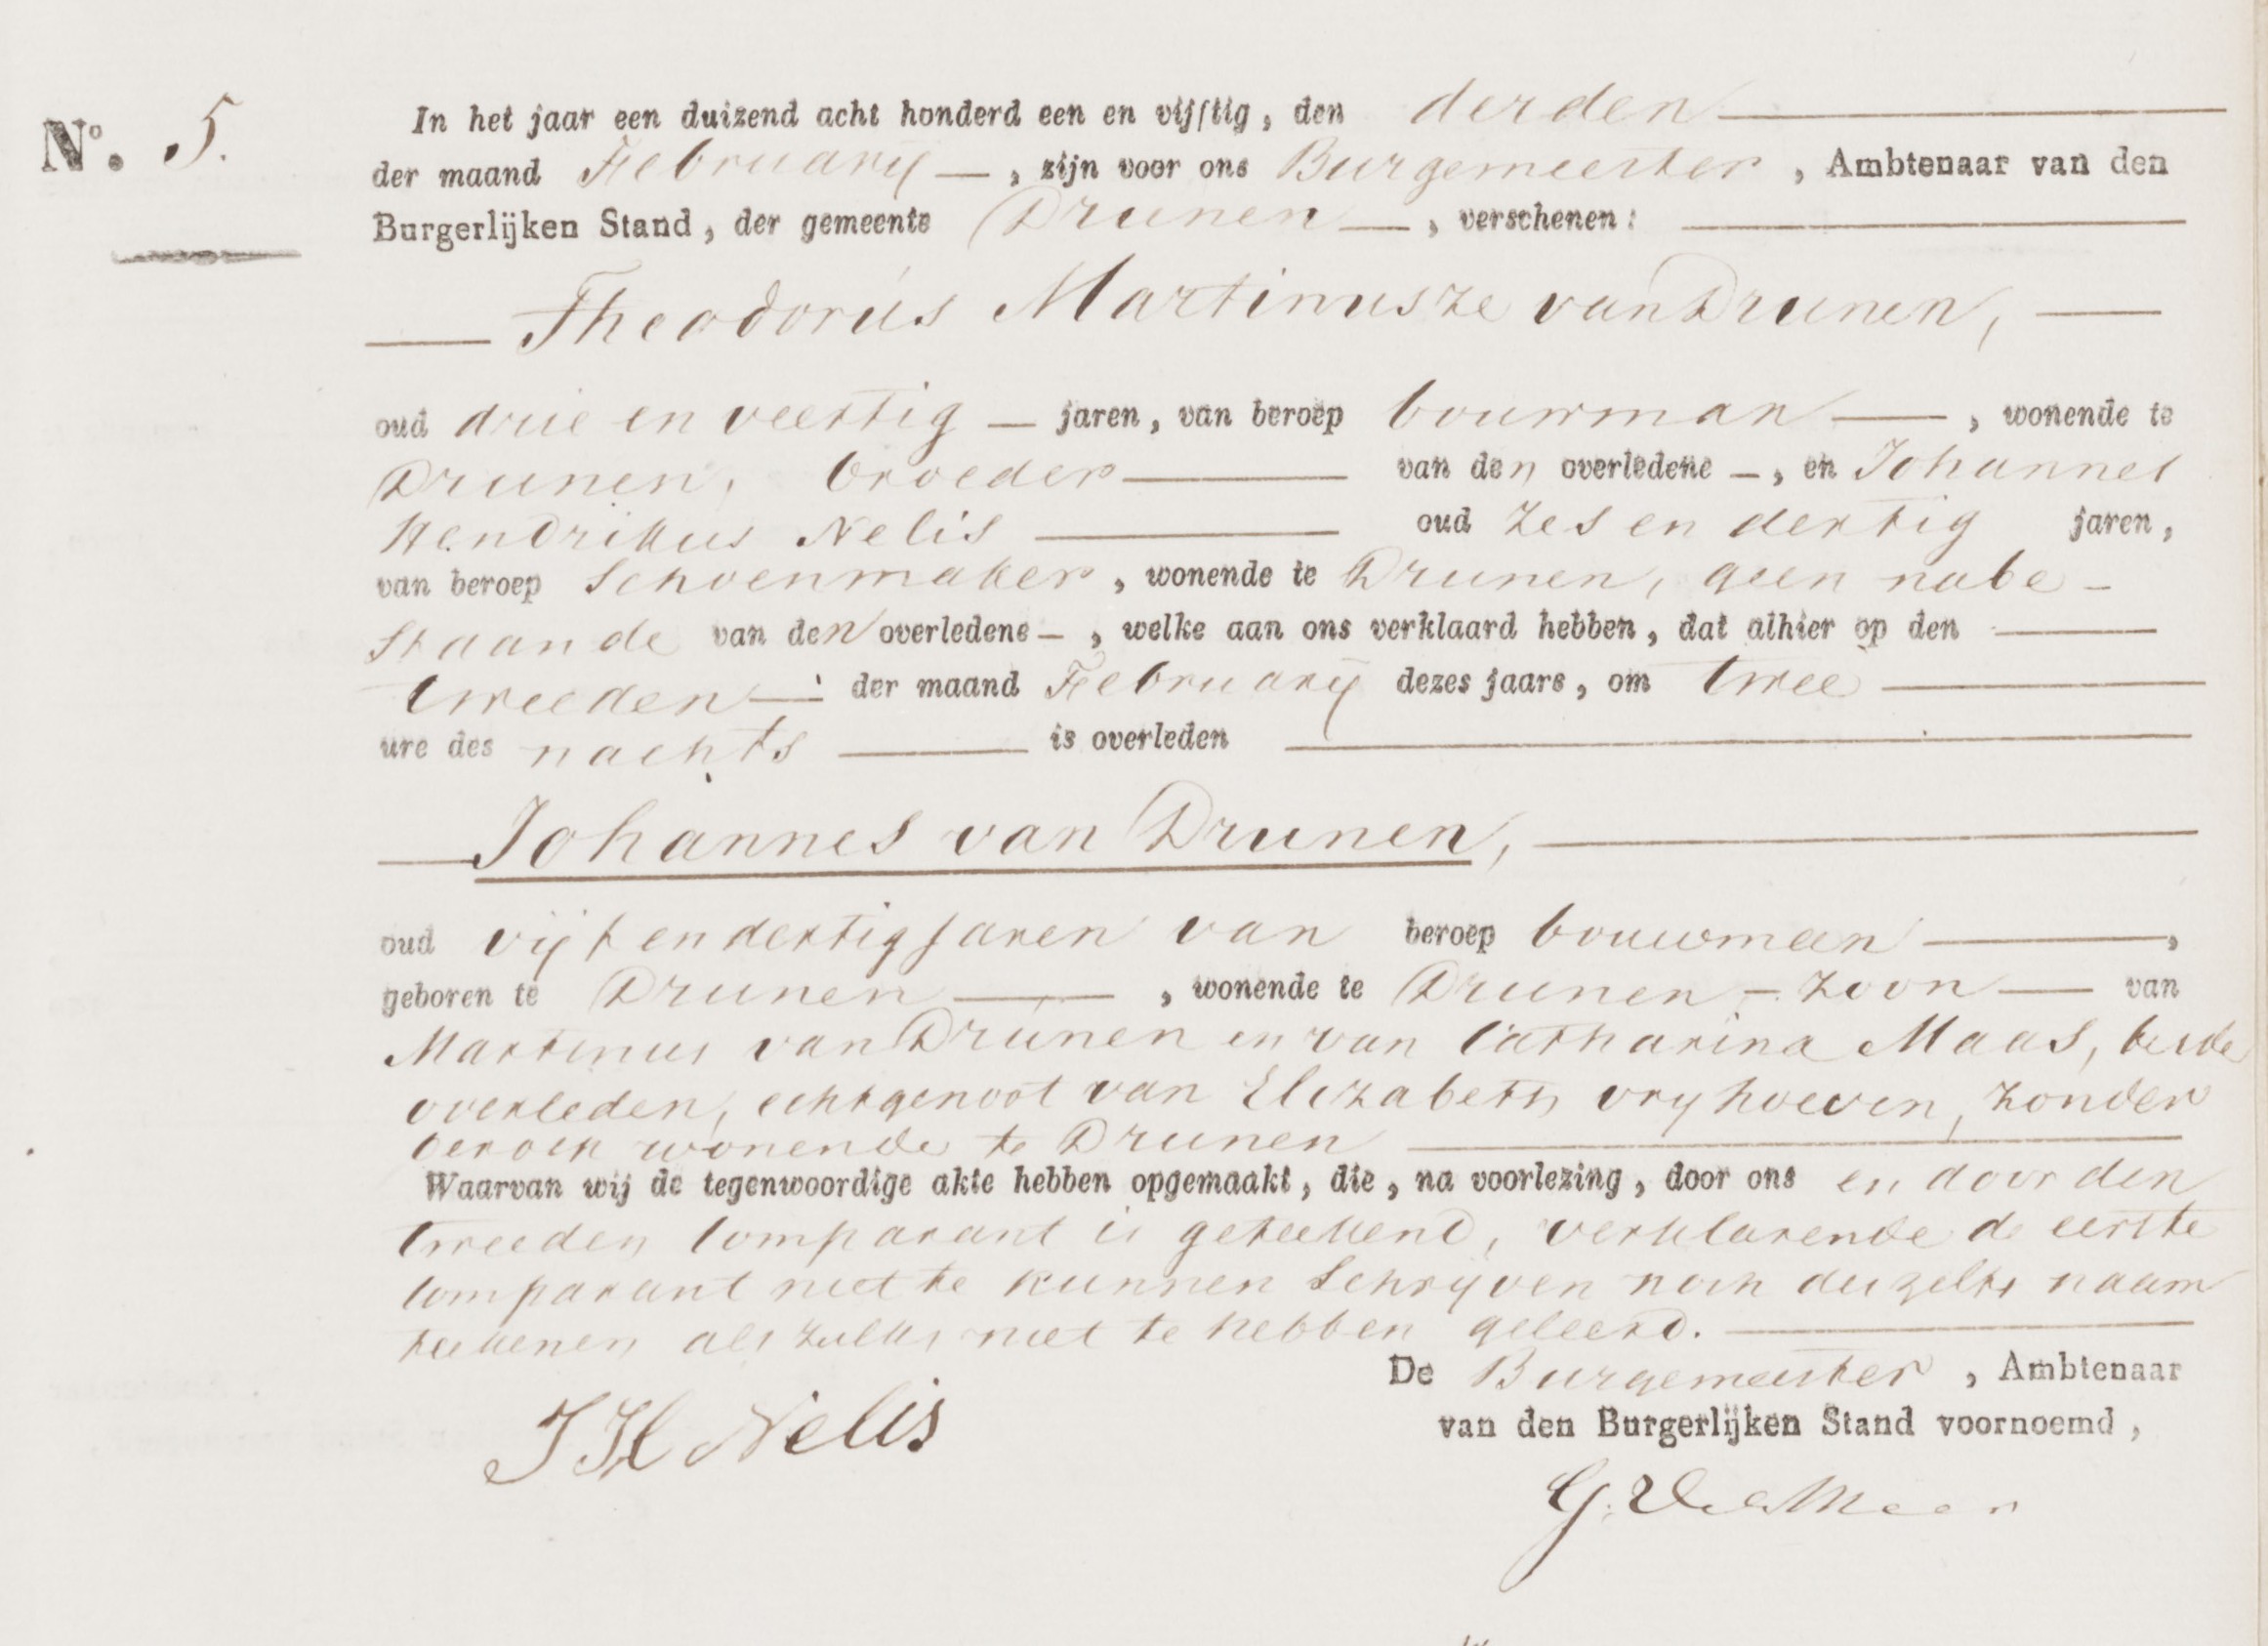 Nº. 5.
In het jaar een duizend acht honderd een en vijftig, den derden
der maand February —, zijn voor ons Burgemeester, Ambtenaar van den
Burgerlijken Stand, der gemeente Drunen —, verschenen:
— Theodorus Martinusze van Drunen, —
oud drie en veertig — jaren, van beroep bouwman —, wonende te
Drunen, broeder — van den overledene —, en Johannes
Hendrikus Nelis — oud zes en dertig jaren,
van beroep Schoenmaker, wonende te Drunen, geen nabe-
staande van den overledene —, welke aan ons verklaard hebben, dat alhier op den —
tweeden — der maand February dezes jaars, om twee —
ure des nachts — is overleden —
— Johannes van Drunen, —
oud vijf en dertig jaren van beroep bouwman —,
geboren te Drunen —, wonende te Drunen – zoon — van
Martinus van Drunen en van Catharina Maas, beide
overleden, echtgenoot van Elizabeth vryhoeven, zonder
beroep wonende te Drunen —
Waarvan wij de tegenwoordige akte hebben opgemaakt, die, na voorlezing, door ons en door den
tweeden Comparant is geteekend, verklarende de eerste
Comparant niet te kunnen Schryven noch deszelfs naam
teekenen als zulks niet te hebben geleerd. —
De Burgemeester, Ambtenaar
van den Burgerlijken Stand voornoemd,
J H Nelis